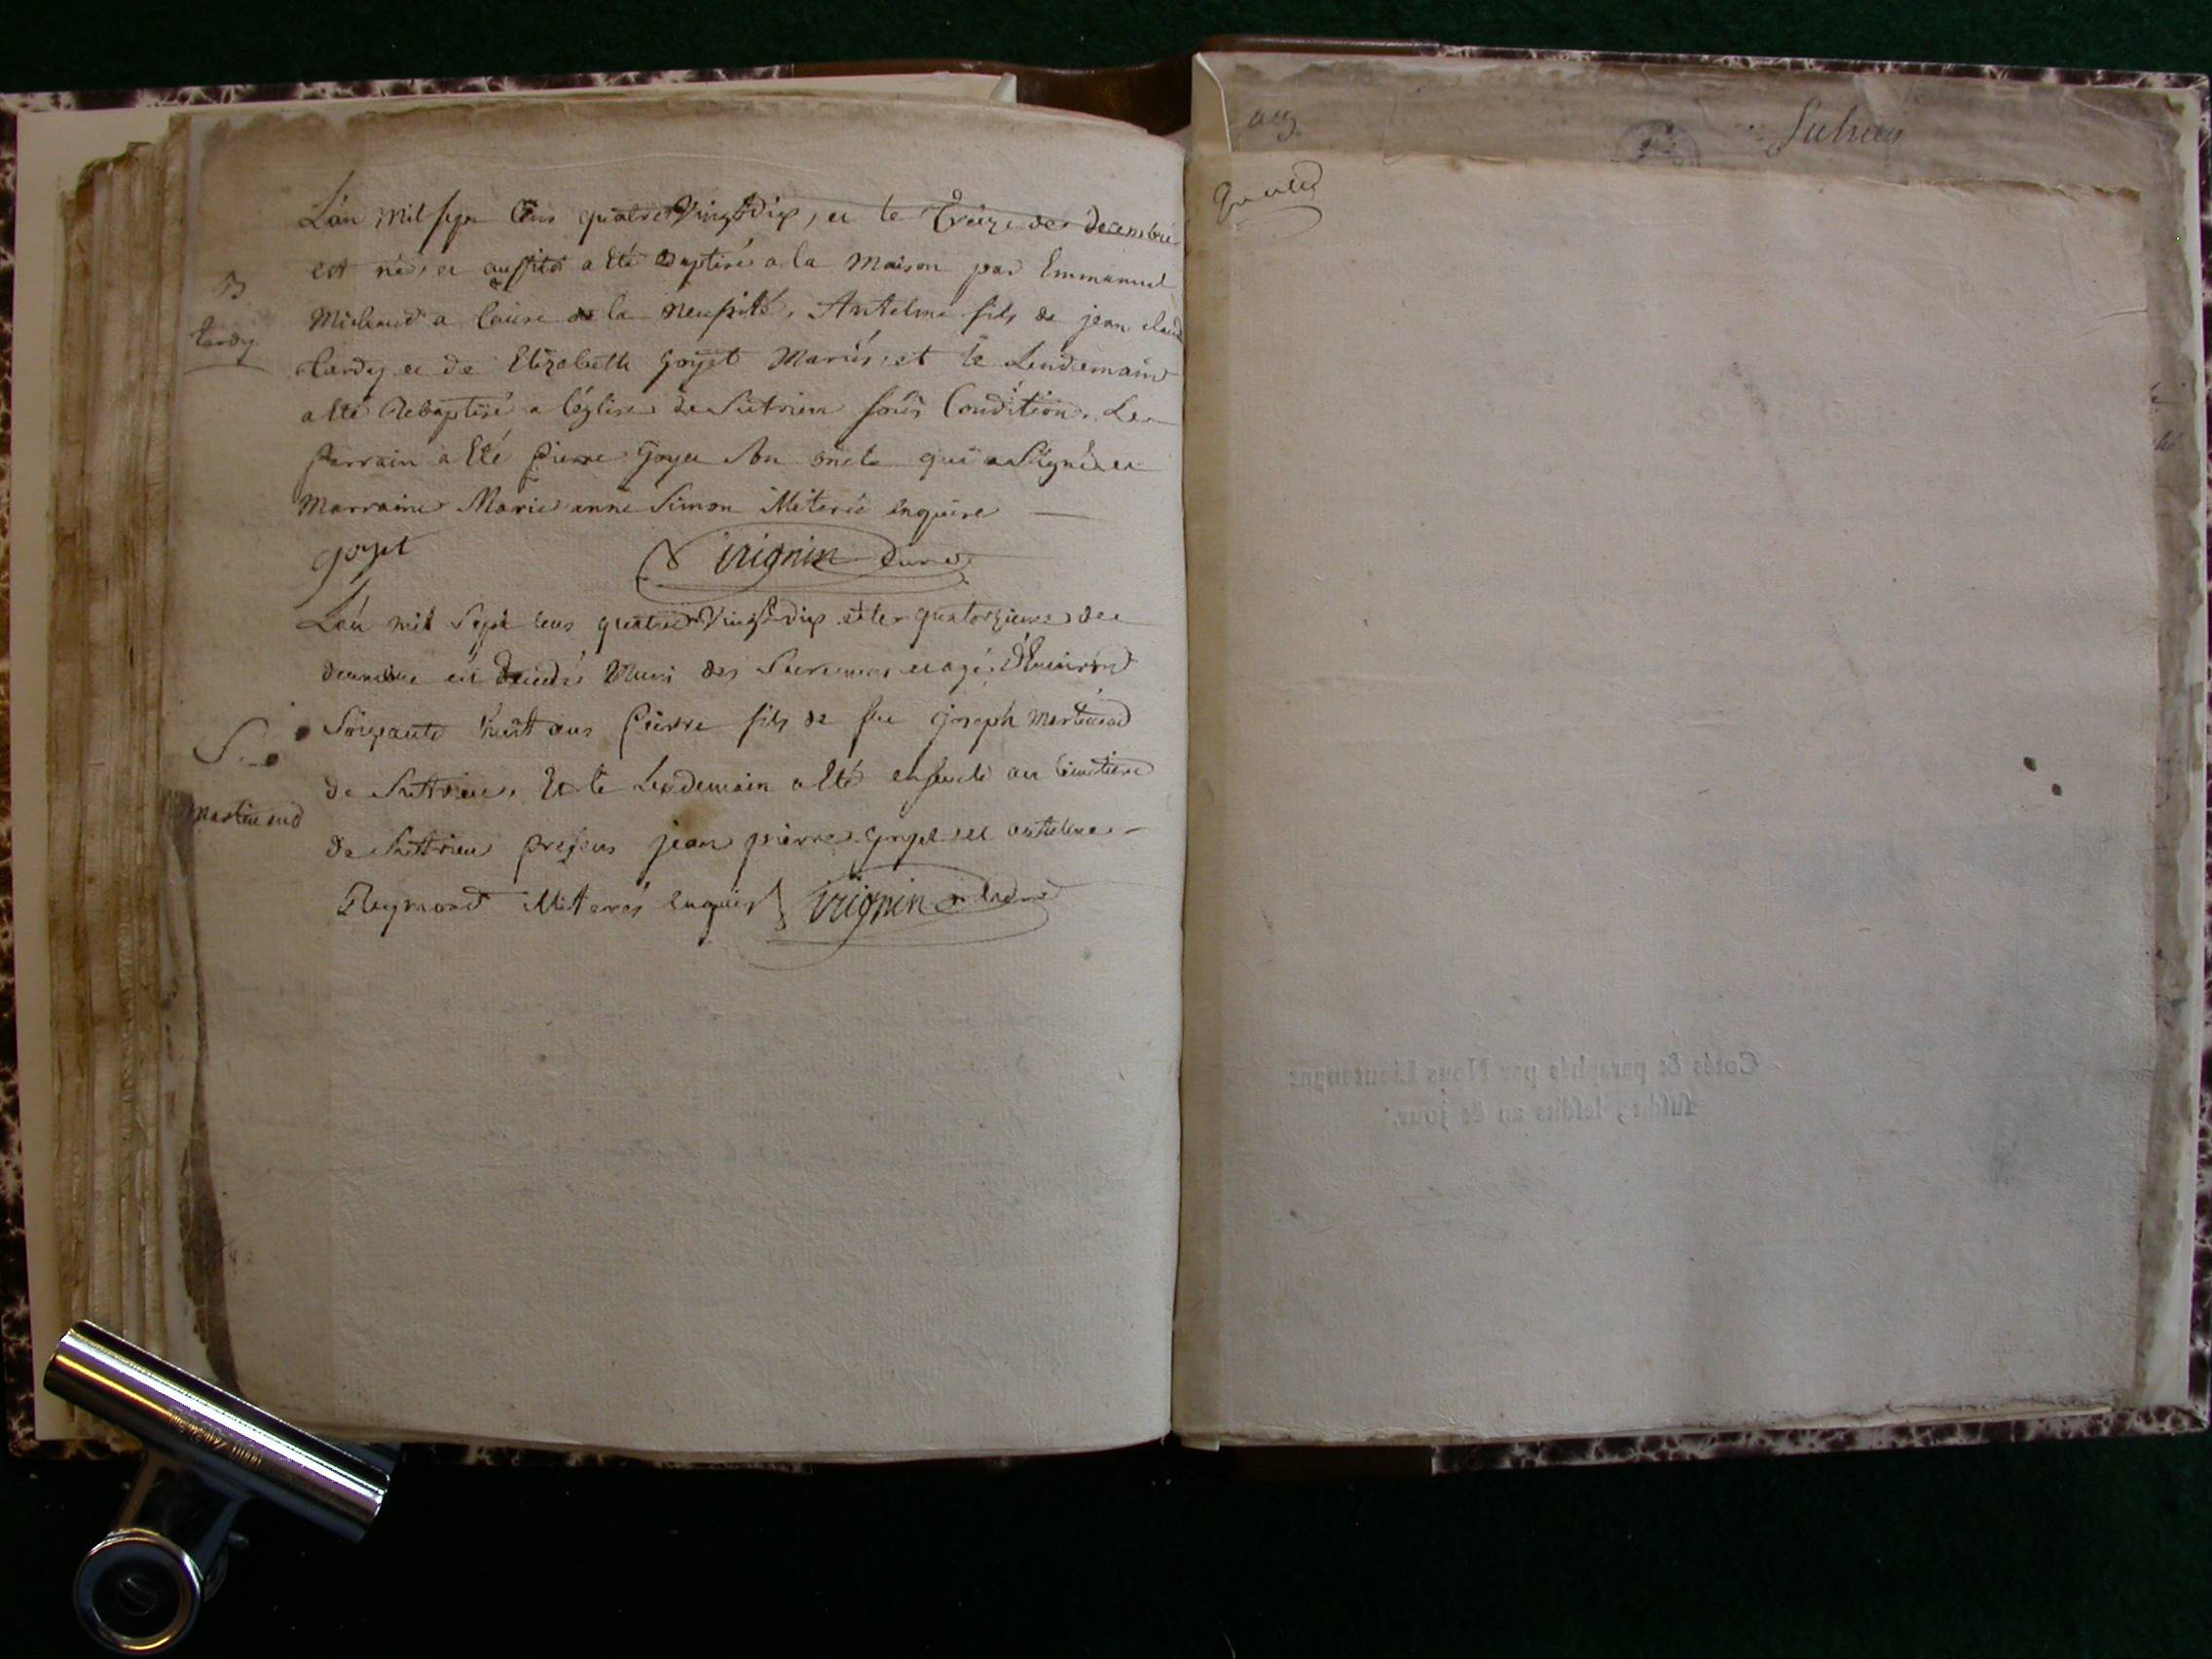 L'an mil sept Cens quatre Vingt Dix, et le Treize de decembre
B
est né, et aussitot a Eté Baptisé a la Maison par Emmanuel
tardy
Michaud a Cause de la necessité, Antelme fils de jean claude
tardy et de Elizabeth Goyet Mariés, et le Lendemain
a Eté Rebaptisé a l'église de Sutrieu sous Condition. Le
Parrain a Eté Pierre Goyet Son oncle qui a Signé et
Marraine Marie anne Simon illiterée enquise
goyet
Vrignin Curé
L'an mil Sept Cens quatre Vingt Dix et le quatorzieme de
decembre est decedé Muni des Sacremens et agé d'Environ
S.
Soixante huit ans Pierre fils de feu joseph martinand
martinand
de Suttrieu, Et le Lendemain a Eté enseveli au Cimetiere
de Suttrieu presens jean pierre goyet et antelme
Reymond illiterés enquis Vrignin Curé
Sutrieu
Cotés & paraphés par Nous Lieutenant
susdit, lesdits an & jour.